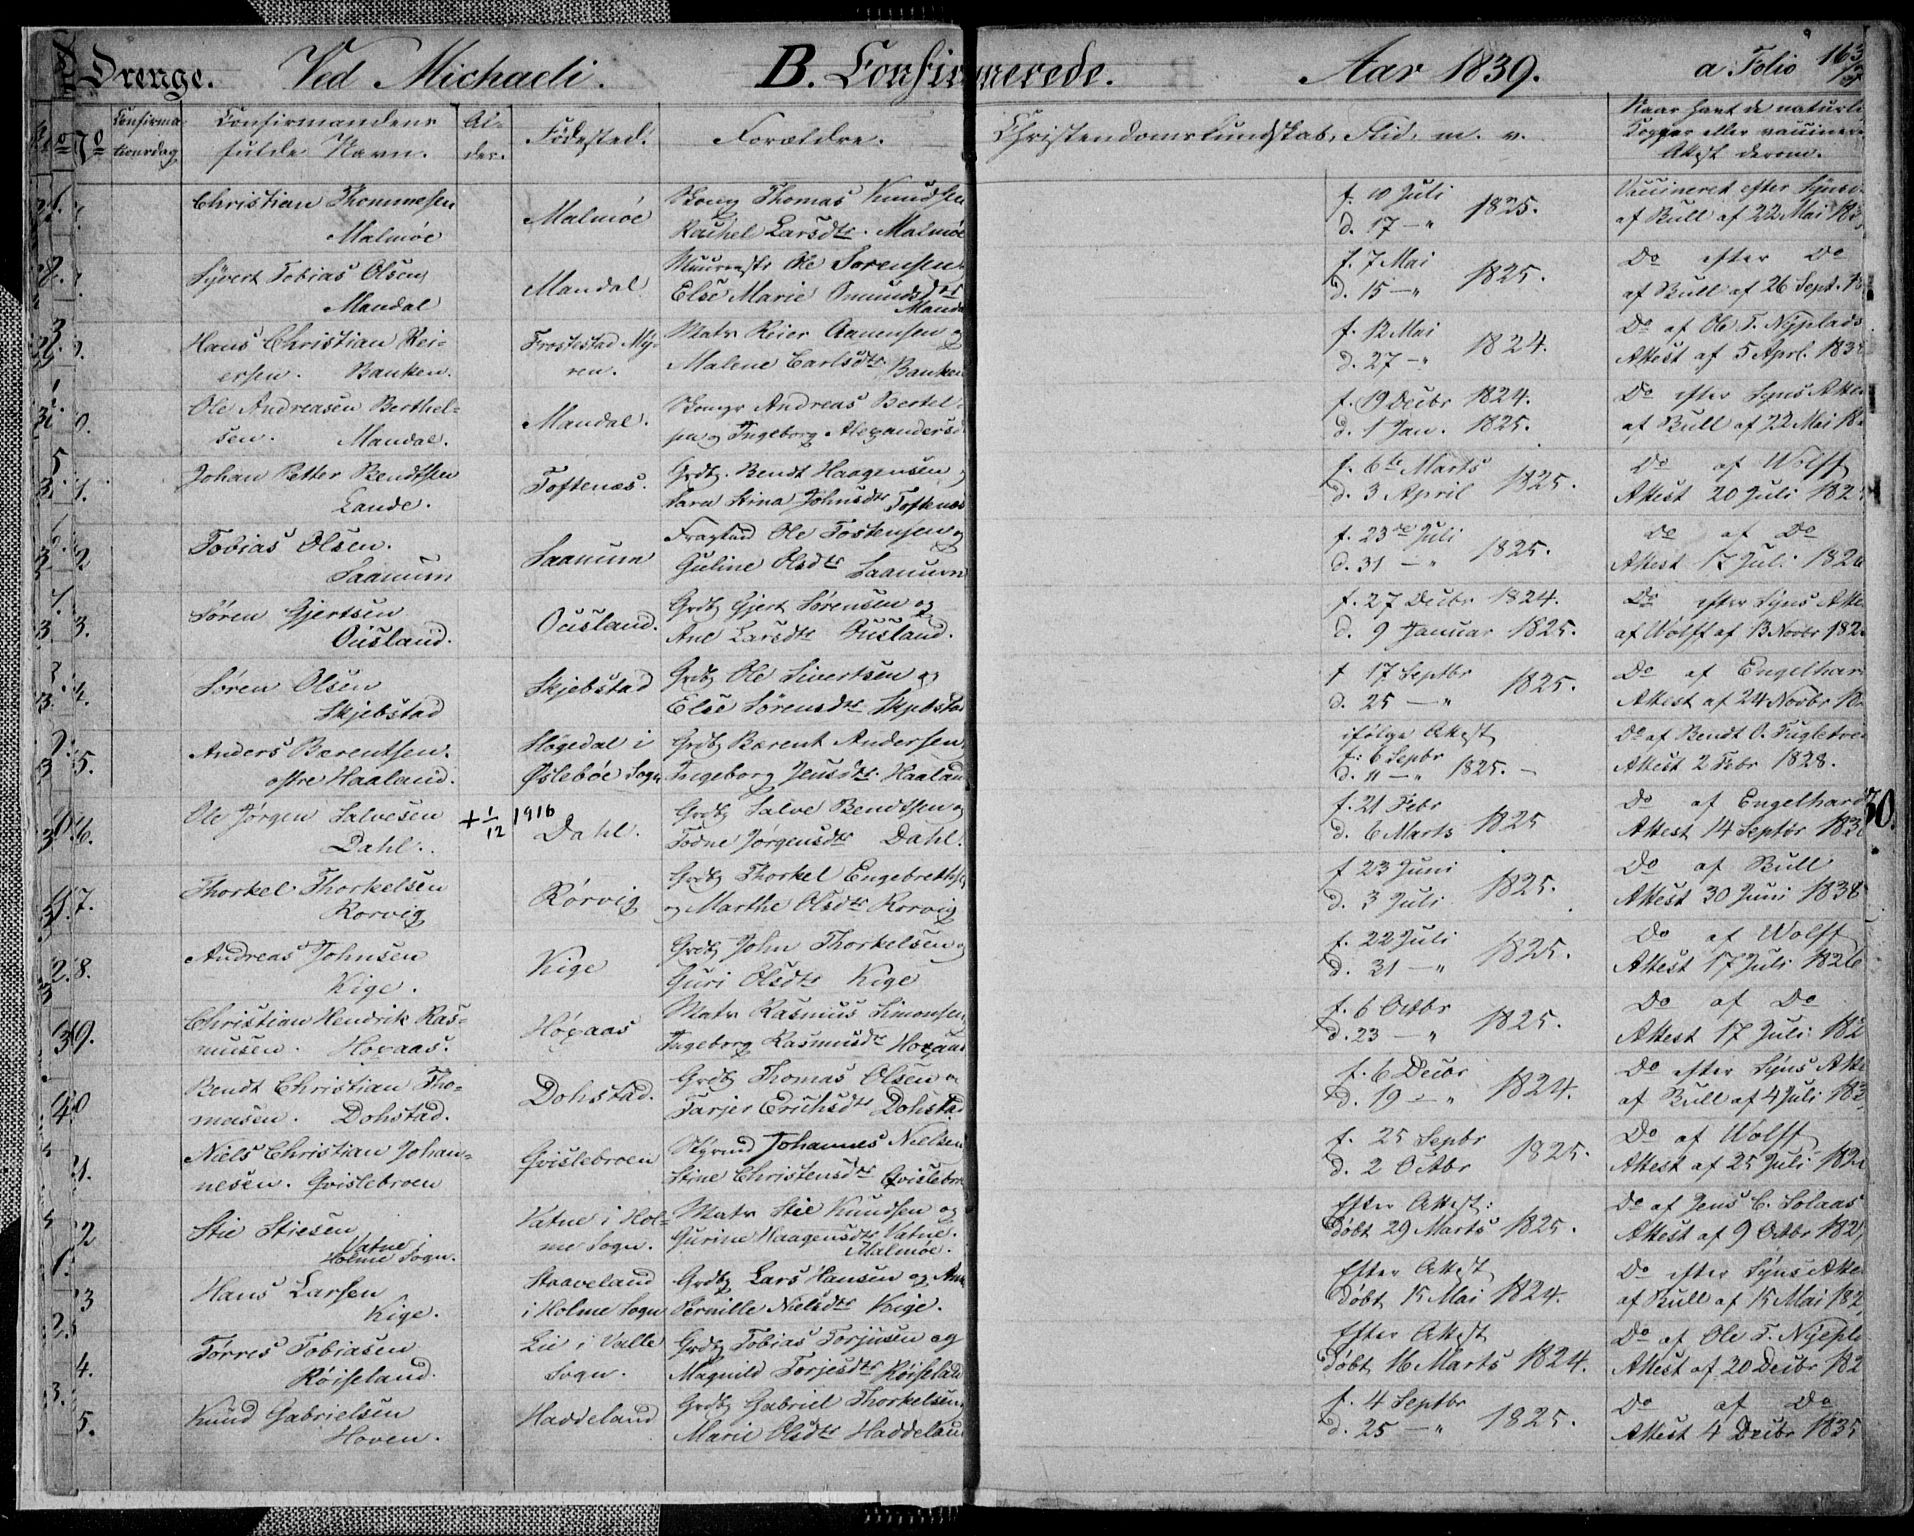 Drenge. Ved Michaeli. B. Confirmerede. Aar 1839. a Folio 163
Confirma-
tionsdag
Confirmandens
fulde Navn.
Al-
der.
Fødested.
Forældre.
Christendomskundskab, Flid, m. v.
Naar havt de naturli
Kopper eller vaccinere
Attest derom.
Christian Thommesen
Malmøe
Malmøe
Thomas Knudsen
Rachel Larsdtr. Malmøe
f. 10 Juli
d. 17 — " 1825.
Vaccineret efter Syns
af Bull af 22 Mai 183
Syvert Tobias Olsen
Mandal
Mandal
Ole Sørensen
Else Marie Omundsdtr
Manda
f. 7 Mai
d. 15 — " 1825.
Do efter Do
af Bull af 26 Sept. 18
3.
Hans Christian Rei-
ersen. Banken.
Frostestad My-
ren.
Matr Reier Aanensen
Malene Carlsdtr Banken
f. 12 Mai
d. 27 — " 1824.
Do af Ole T. Nyplads
Attest af 5 Aprl. 183
Ole Andreasen Berthel-
sen. Mandal.
Mandal.
Andreas Bertel-
sen og Ingeborg Alexandersd
f. 19 Decbr 1824.
d. 1 Jan. 1825.
Do efter Syns Atte
af Bull af 22 Mai 18
5
1.
Johan Petter Bendtsen
Lande.
Toftenes.
Grdbr. Bendt Haagensen
Sara Stina Johnsdtr Toftenes
f. 6te Marts
d. 3 April 1825.
Do af Wolff
Attest 20 Juli 182
2
Tobias Olsen.
Saanum
Saanum
Ole Tostensen
Guline Olsdtr Saanum
f. 23de Juli
d. 31 — " 1825.
Do af Do
Attest 17 Juli 1826
7.
3.
Søren Gjertsen
Ousland.
Ousland.
Grdbr Gjert Sørensen og
Ane Larsdtr Ousland.
f. 27 Decbr 1824.
d. 9 Januar 1825.
Do efter Syns Atte
af Wolff af 13 Novbr 182
4.
Søren Olsen
Skjebstad
Skjebstad
Grdbr Ole Sivertsen og
Else Sørensdtr Skjebstad
f 17 Septbr
d. 25 — " 1825.
Do af Engelhar
Attest af 24 Novbr 18
5.
Anders Barentsen.
østre Haaland.
Høgedal i
Øslebøe Sogn
Grdbr Barent Andersen
Ingeborg Jensdtr. Haalan
ifølge Attest
f. 6 Sepbr
d. 11 — " 1825. —
Do af Bendt O. Fugletve
Attest 2 Febr 1828.
6.
Ole Jørgen Salvesen
Dahl.
+ 1/12 1916
Dahl.
Grdbr Salve Bendtsen og
Todne Jørgensdtr Dahl.
f. 21 Febr
d. 6 Marts 1825
Do af Engelhard
Attest 14 Septbr 183
7.
Thorkel Thorkelsen
Rorvig
Rørvig
Grdbr Thorkel Engebrethse
og Marthe Olsdtr Rorvig
f 23 Juni
d. 3 Juli 1825.
Do af Bull
Attest 30 Juni 1838
8.
Andreas Johnsen
Kige.
Kige
Grdbr John Thorkelsen og
Guri Olsdtr Kige
f. 22 Juli
d. 31 — " 1825.
Do af Wolff
Attest 17 Juli 1826
39.
Christian Hendrik Ras-
musen. Hoxaas.
Høxaas
Matr Rasmus Simonsen
Ingeborg Rasmusdtr Hoxaas
f. 6 Octbr
d. 23 — " 1825.
Do af Do
Attest 17 Juli 182
40
Bendt Christian Tho-
masen. Dohstad.
Dohstad.
Grdbr Thomas Olsen og
Tarjer Erichsdtr Dohstad
f. 6 Decbr
d. 19 — " 1824.
Do efter Syns Atte
af Bull af 4 Juli 183
1.
Niels Christian Johan-
nesen. Qvislebroen
Qvislebroen
Styrmd Johannes Nielsen
Stine Christensdtr Qvislebro
f. 25 Sepbr
d. 2 Octbr 1825.
Do af Wolff
Attest af 25 Juli 182
2
Stie Stiesen
Vatne i
Holme Sogn.
Vatne i Hol-
me Sogn.
Matr Stie Knudsen og
Gurine Haagensdtr Vatne.
Malmøe.
Efter Attest:
døbt 29 Marts 1825.
Do af Jens C. Solaas
Attest af 9 Octbr 182
3
Hans Larsen
Kige.
Staaveland
i Holme Sogn
Grdbr Lars Hansen og Ann
Pernille Nielsdtr Kige.
Efter Attest
døbt 15 Mai 1824.
Do efter Syns Atte
af Bull af 15 Mai 182
4.
Tørres Tobiasen
Røiseland.
Lie i Valle
Sogn.
Grdbr Tobias Torjusen og
Magnild Torjesdtr Røiseland
Efter Attest
døbt 16 Marts 1824.
Do af Ole T. Nyepl
Attest af 20 Decbr 182
5.
Knud Gabrielsen
Hoven.
Haddeland
Grdbr Gabriel Thorkelsen
Marie Olsdtr Haddeland
f. 4 Septbr
d. 25 — " 1825.
Do af Do
Attest 4 Decbr 1835